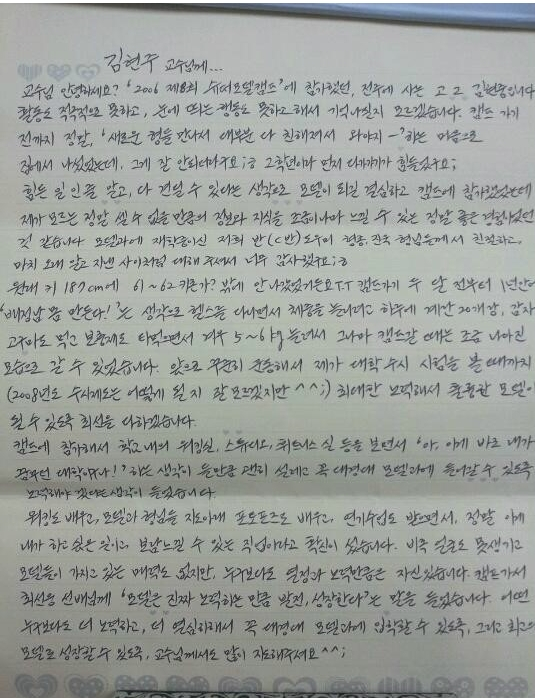 김현주 교수님께...
교수님 안녕하세요? '2006 제8회 슈퍼모델캠프'에 참가했던, 전주에 사는 고2 김현중입니다
활동도 적극적으로 못하고, 눈에 띄는 행동도 못하고 해서 기억나실지 모르겠습니다. 캠프 가기
전까지 정말, '새로운 형들 만나서 대부분 다 친해져서 와야지-'하는 마음으로
집에서 나섰었는데, 그게 잘 안되더라구요;ㅎ 2학년이라 먼저 다가가기가 힘들었구요;
힘든 일인줄 알고, 다 견딜 수 있다는 생각으로 모델이 되길 결심하고 캠프에 참가했었는데
제가 모르는 정말 셀 수 없을 만큼의 정보와 지식을 조금이나마 느낄 수 있는 정말 좋은 경험이었던
것 같습니다 모델과에 재학중이신 저희 반(C반)도우미 형종, 진국 형님들께서 친절하고,
마치 오래 알고 지낸 사이처럼 대해 주셔서 너무 감사했구요;ㅎ
원래 키 187cm에 61~62키론가? 밖에 안나갔었거든요TT 캠프가기 두 달 전부터 1년만에
'배정남 몸 만든다!'는 생각으로 헬스를 다니면서 체중을 늘리려고 하루에 계란 20개랑, 감자
고구마도 먹고 보충제도 타먹으면서 겨우 5~6kg 늘려서 그나마 캠프갈 때는 조금 나아진
모습으로 갈 수 있었습니다. 앞으로 꾸준히 운동해서 제가 대학 수시 시험을 볼 때까지
(2008년도 수시제도는 어떻게 될 지 잘 모르겠지만 ^^;) 최대한 노력해서 훌륭한 모델이
될 수 있도록 최선을 다하겠습니다.
캠프에 참가해서 학교 내의 워킹실, 스튜디오, 휘트니스 실 등을 보면서 '아, 이게 바로 내가
꿈꾸던 대학이구나!'하는 생각이 들만큼 괜히 설레고 꼭 대경대 모델과에 들어갈 수 있도록
노력해야 겠다는생각이 들었습니다.
워킹도 배우고, 모델과 형님들 지도아래 포토포즈도 배우고, 연기수업도 받으면서, 정말 이게
내가 하고 싶은 일이고, 보람느낄 수 있는 직업이라고 확신이 섰습니다. 비록 얼굴도 못생기고
모델들이 가지고 있는 매력도 없지만, 누구보다도 열정과 노력만큼은 자신있습니다. 캠프가서
최선용 선배님께 '모델은 진짜 노력하는 만큼 발전, 성장한다'는 말을 들었습니다. 어떤
누구보다도 더 노력하고, 더 열심히해서 꼭 대경대 모델과에 입학할 수 있도록, 그리고 최고의
모델로 성장할 수 있도록, 교수님께서도 많이 지도해주세요^^;